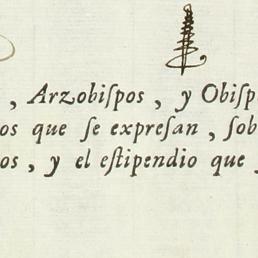 , Arzobiſpos, y Obiſp
os que ſe expreſan, ſob
os, y el eſtipendio que